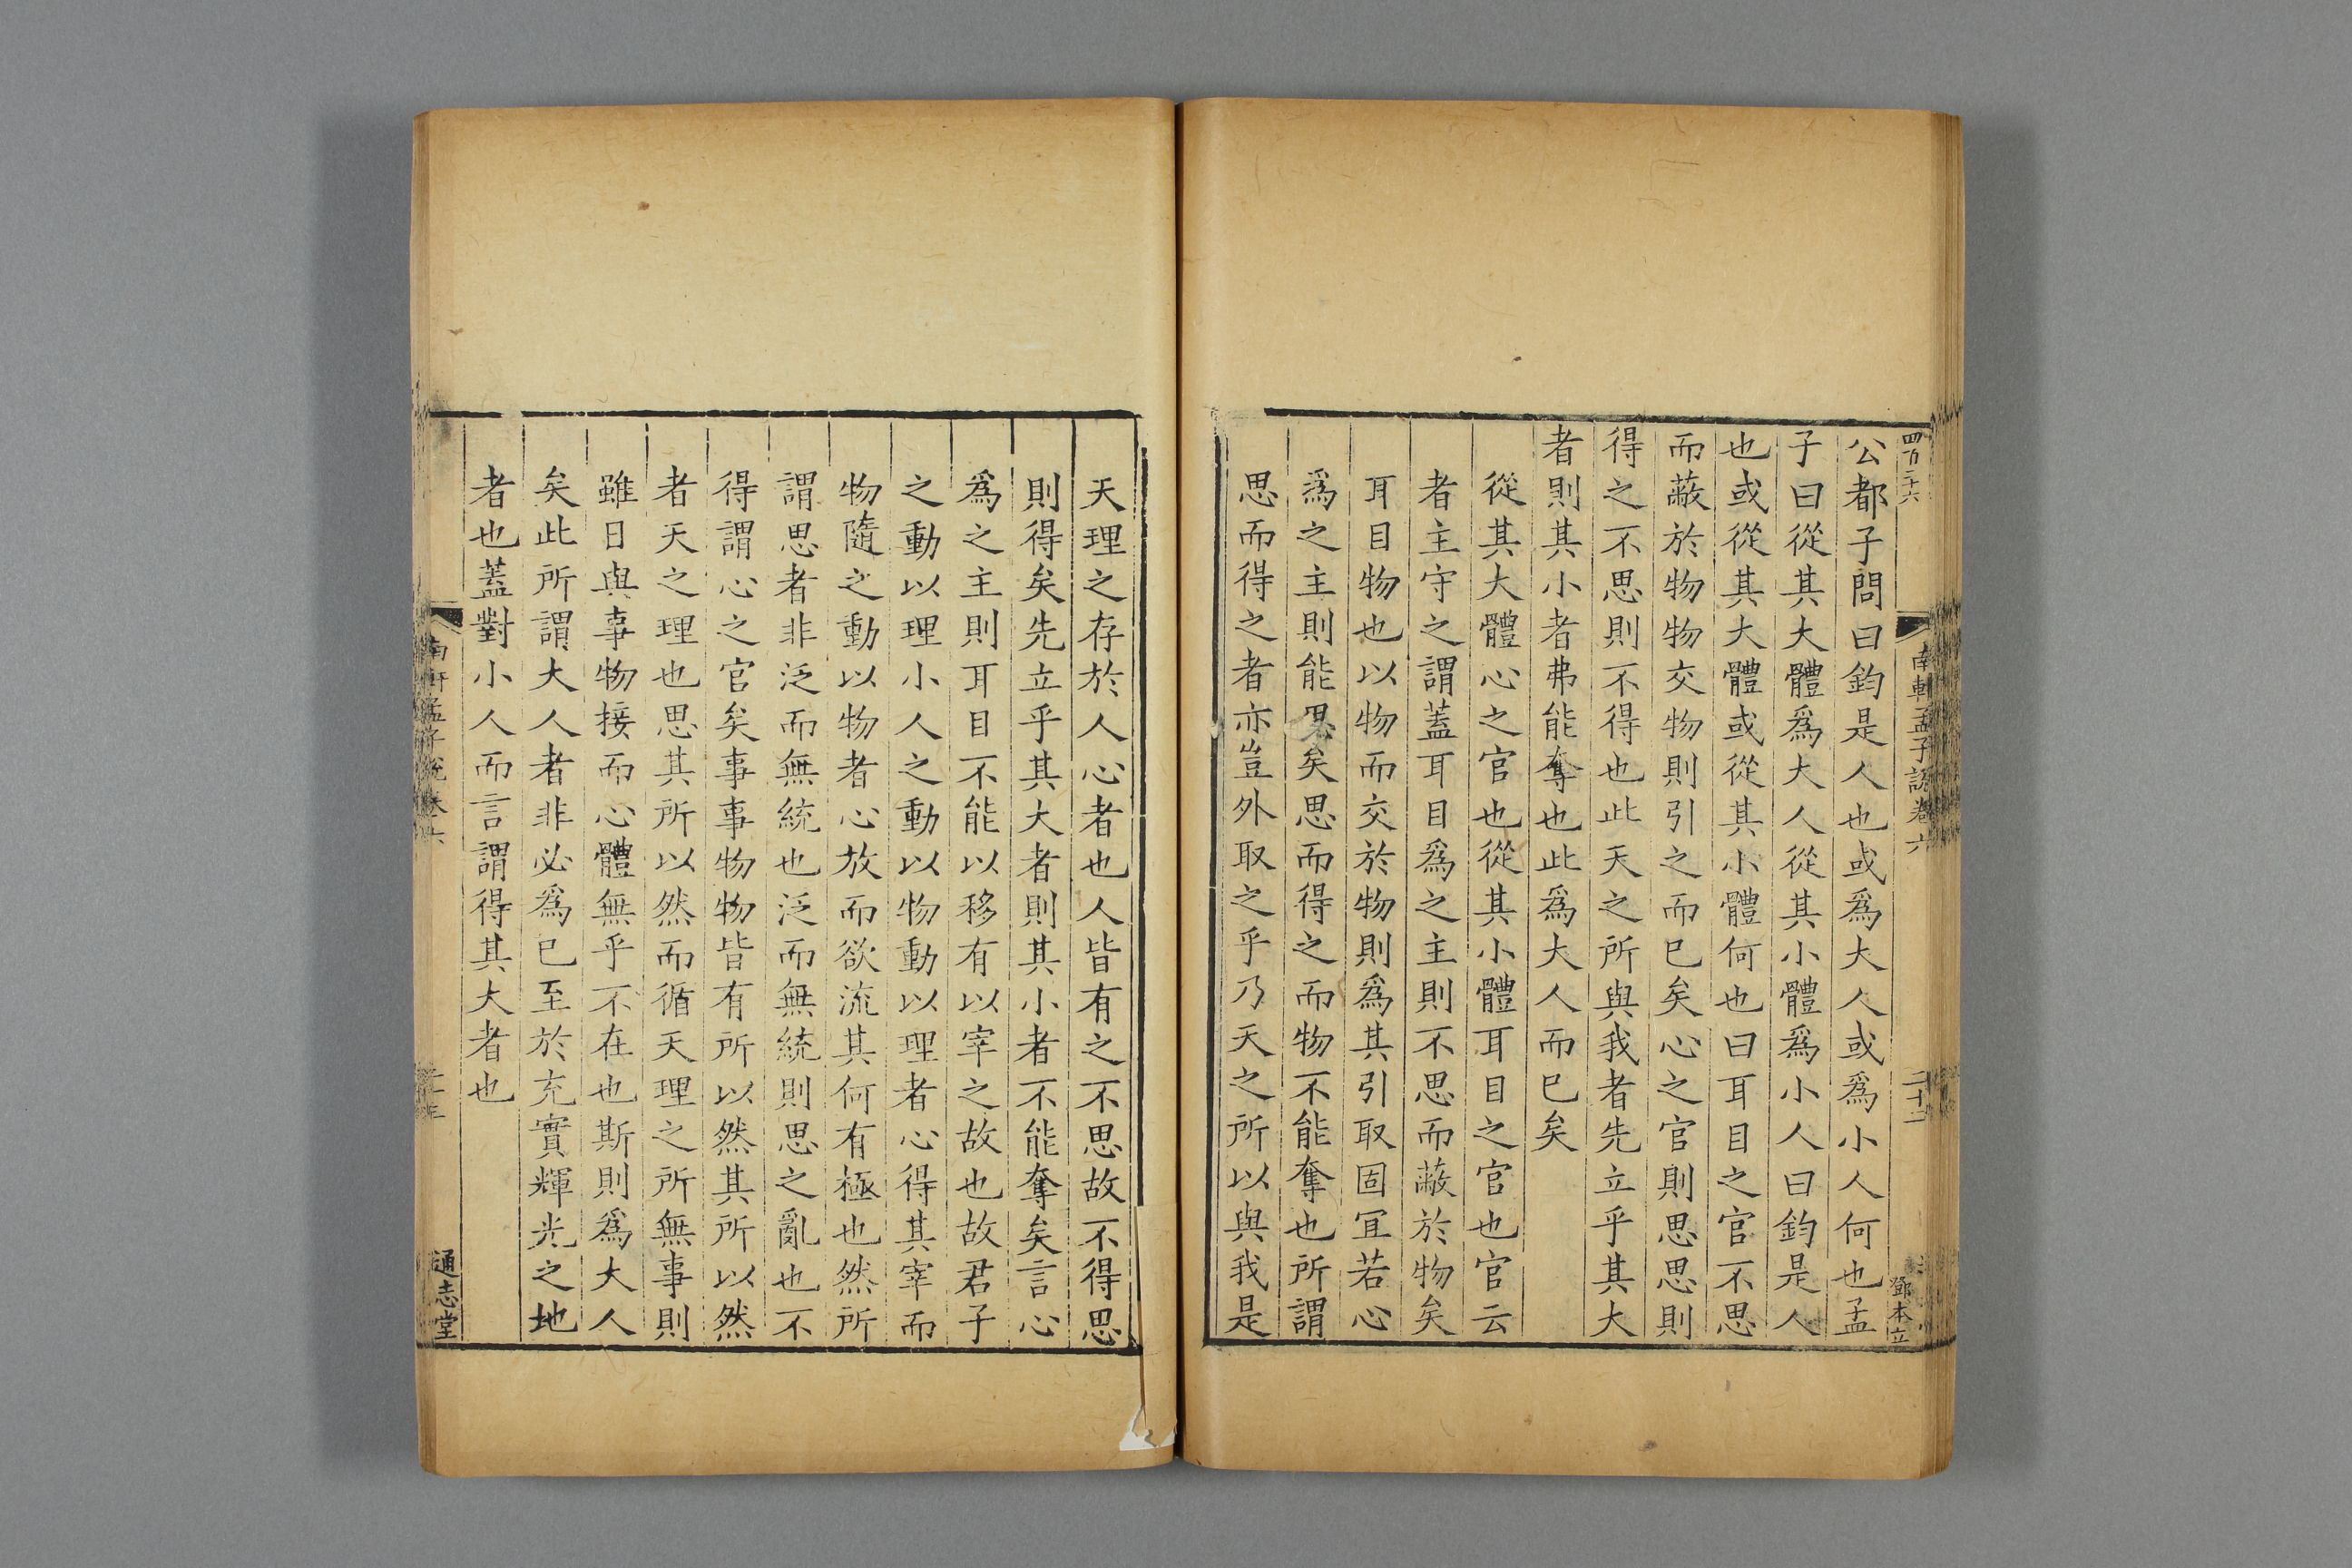 四百二十六
南軒孟子說卷六
二十二
鄧本立
公都子問曰鈞是人也或爲大人或爲小人何也孟
子曰從其大體爲大人從其小體爲小人曰鈞是人
也或從其大體或從其小體何也曰耳目之官不思
而蔽於物物交物則引之而已矣心之官則思思則
得之不思則不得也此天之所與我者先立乎其大
者則其小者弗能奪也此爲大人而已矣
從其大體心之官也從其小體耳目之官也官云
者主守之謂蓋耳目爲之主則不思而蔽於物矣
耳目物也以物而交於物則爲其引取固冝若心
爲之主則能思矣思而得之而物不能奪也所謂
思而得之者亦豈外取之乎乃天之所以與我是
天理之存於人心者也人皆有之不思故不得思
則得矣先立乎其大者則其小者不能奪矣言心
爲之主則耳目不能以移有以宰之故也故君子
之動以理小人之動以物動以理者心得其宰而
物隨之動以物者心放而欲流其何有極也然所
謂思者非泛而無統也泛而無統則思之亂也不
得謂心之官矣事事物物皆有所以然其所以然
者天之理也思其所以然而循天理之所無事則
雖日與事物接而心體無乎不在也斯則爲大人
矣此所謂大人者非必爲已至於充實輝光之地
者也蓋對小人而言謂得其大者也
南軒孟子說卷六
通志堂